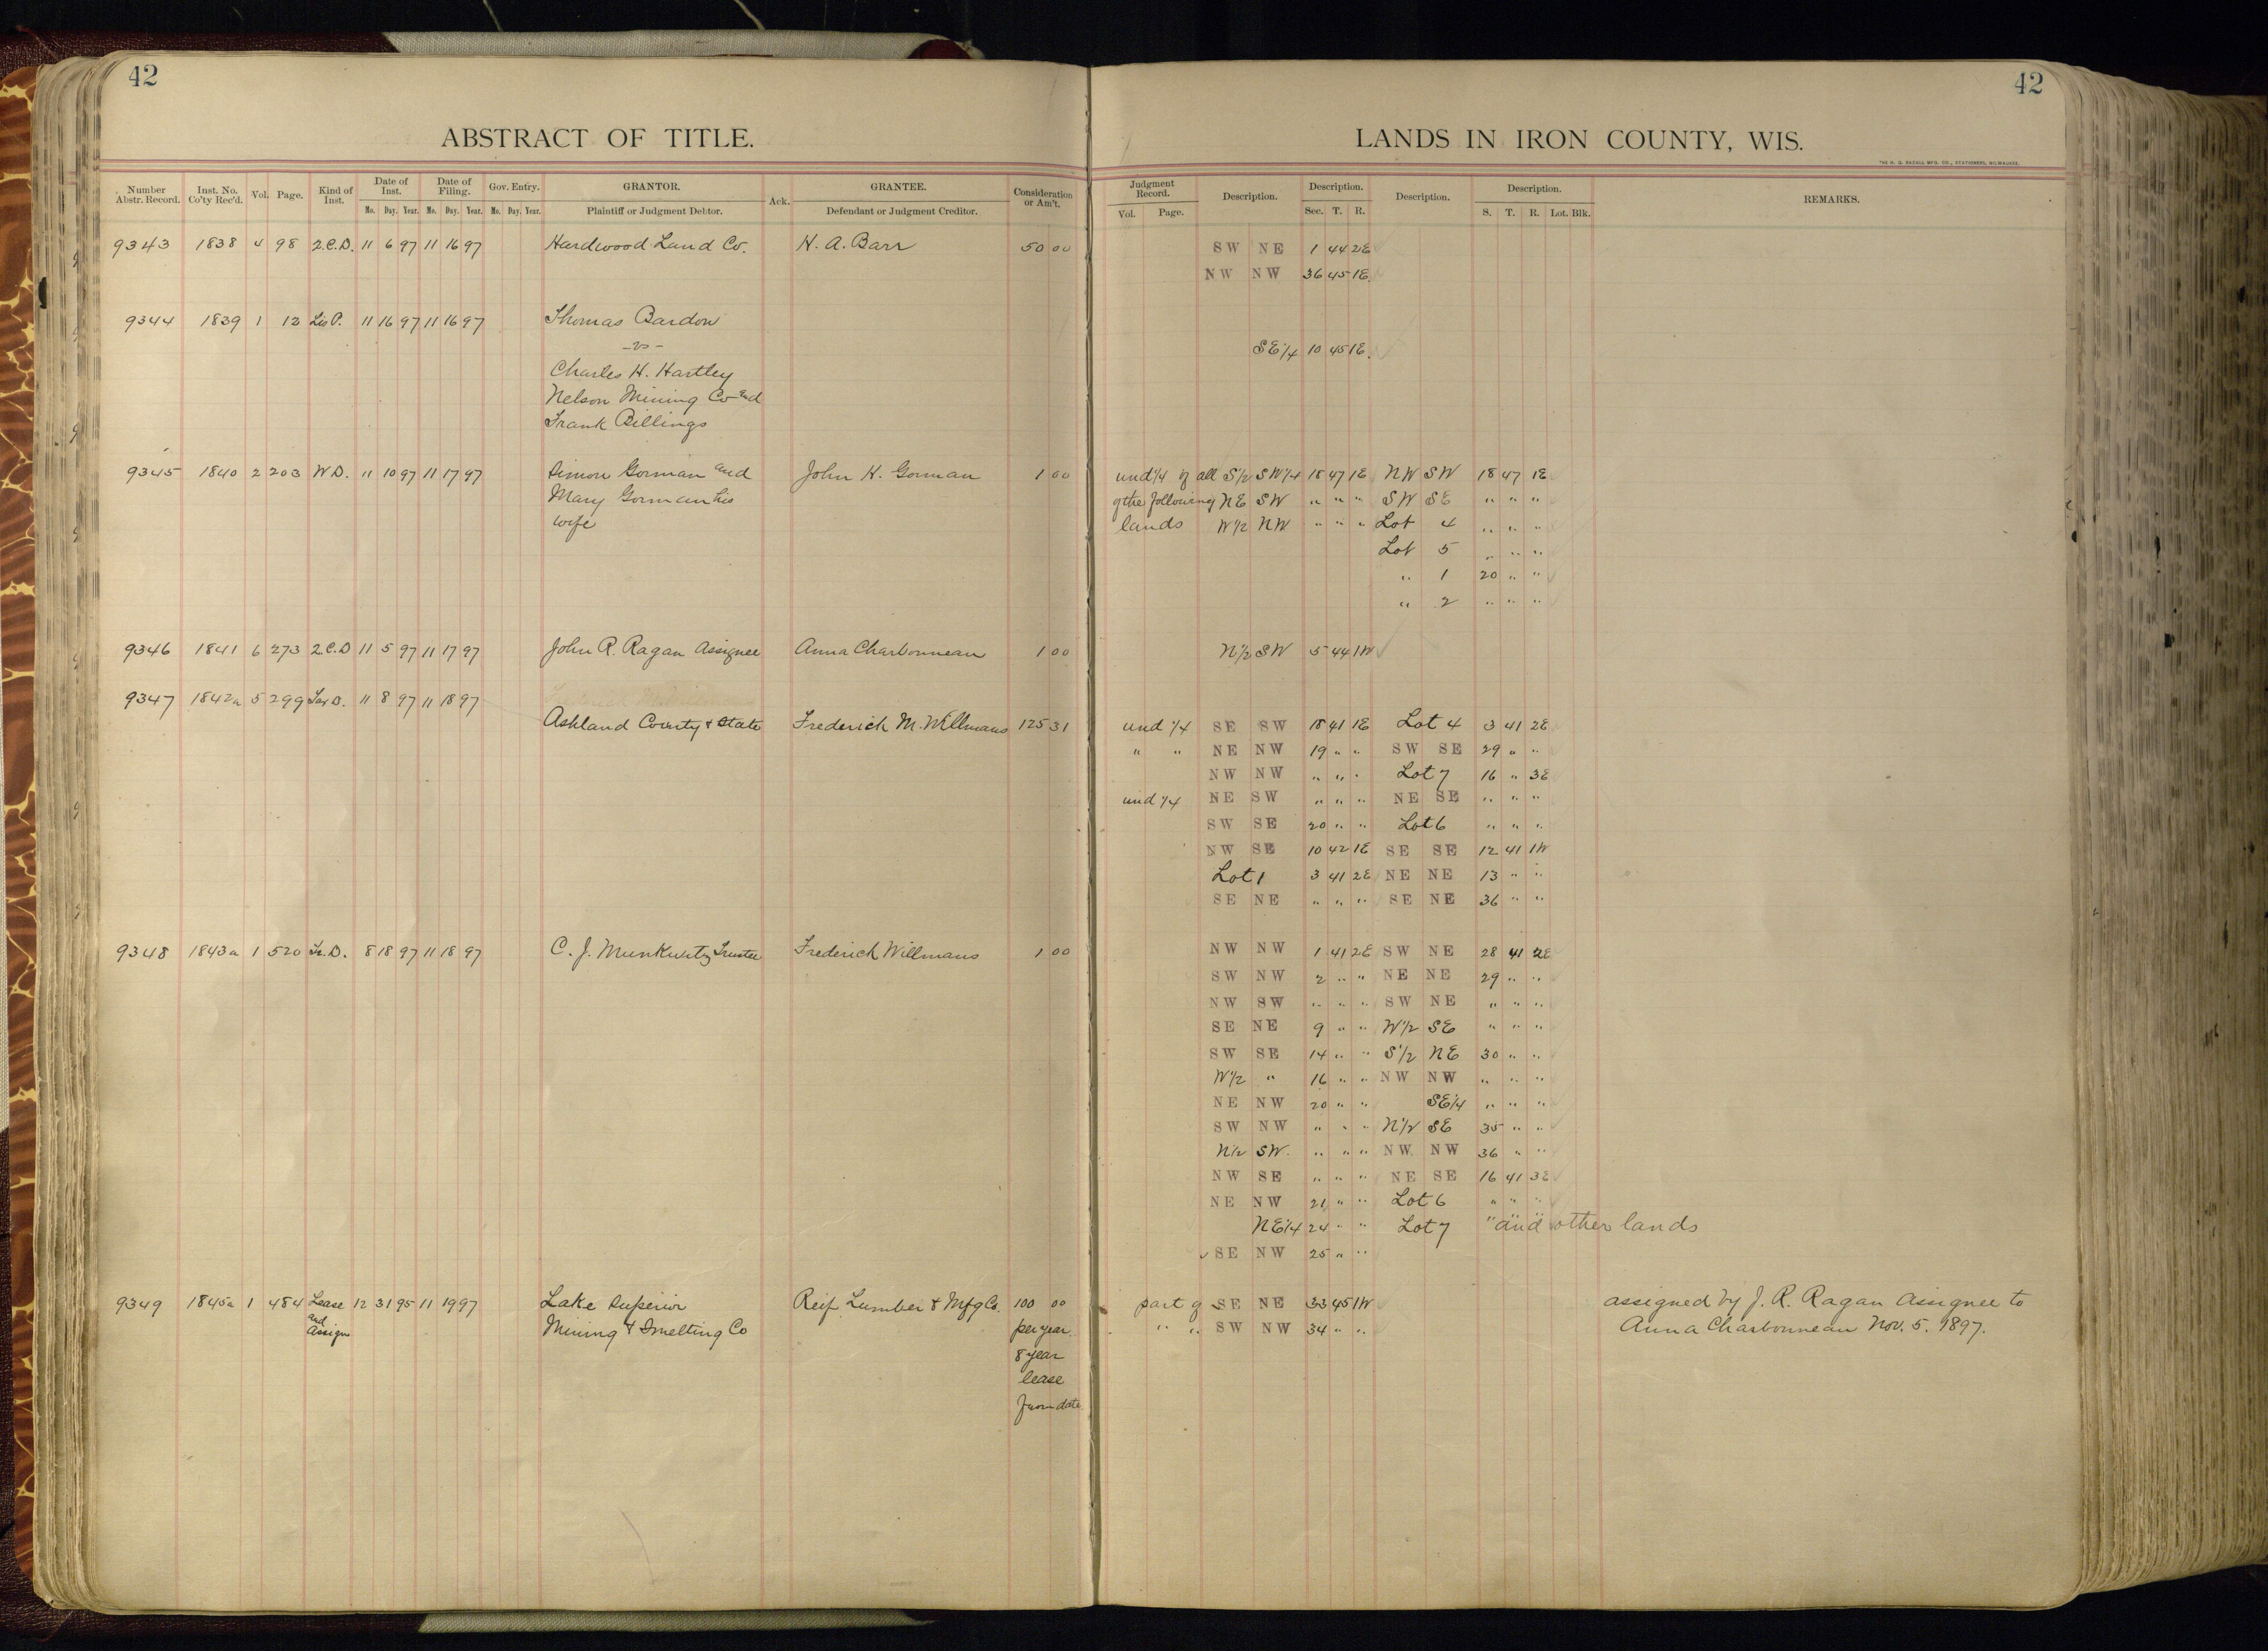 42
42
ABSTRACT OF TITLE.
LANDS IN IRON COUNTY, WIS.
THE H. G. RAZALL MFG. CO., STATIONERS, MILWAUKEE.
Number Abstr. Record. Inst. No. Co'ty Rec'd. Vol. Page. Kind of Inst. Date of Inst. Mo. Day. Year. Date of Filing. Mo. Day. Year. Gov. Entry. Mo. Day. Year. GRANTOR. Plaintiff or Judgment Debtor. Ack. GRANTEE. Defendant or Judgment Creditor. Consideration or Am't.
Judgment Record. Vol. Page. Description. Description. Sec. T. R. Description. Description. S. T. R. Lot. Blk. REMARKS.
9343 1838 4 98 2.C.D. 11 6 97 11 16 97 Hardwood Land Co. H. A. Barr 50 00 SW NE 1 44 2E
NW NW 36 45 1E
9344 1839 1 12 Lis P. 11 16 97 11 16 97 Thomas Bardon
-vs- SE 1/4 10 45 1E
Charles H. Hartley
Nelson Mining Co and
Frank Billings
9345 1840 2 203 W D. 11 10 97 11 17 97 Simon Gorman and John H. Gorman 1 00 und 1/4 of all S 1/2 SW 1/4 18 47 1E NW SW 18 47 1E
Mary Gorman his of the following NE SW " " " SW SE " " "
wife lands W 1/2 NW " " " Lot 4 " " "
Lot 5 " " "
" 1 20 " "
" 2 " " "
9346 1841 6 273 2.C.D 11 5 97 11 17 97 John R. Ragan Assignee Anna Charbonneau 1 00 N 1/2 SW 5 44 1W
9347 1842a 5 299 Tax D. 11 8 97 11 18 97
Ashland County & State Frederick M. Willmans 125 31 und 1/4 SE SW 18 41 1E Lot 4 3 41 2E
" " NE NW 19 " " SW SE 29 " "
NW NW " " " Lot 7 16 " 3E
und 1/4 NE SW " " " NE SE " " "
SW SE 20 " " Lot 6 " " "
NW SE 10 42 1E SE SE 12 41 1W
Lot 1 3 41 2E NE NE 13 " "
SE NE " " " SE NE 36 " "
9348 1843a 1 520 Tr. D. 8 18 97 11 18 97 C. J. Munkwitz Trustee Frederick Willmans 1 00 NW NW 1 41 2E SW NE 28 41 2E
SW NW 2 " " NE NE 29 " "
NW SW " " " SW NE " " "
SE NE 9 " " W 1/2 SE " " "
SW SE 14 " " S 1/2 NE 30 " "
W 1/2 " 16 " " NW NW " " "
NE NW 20 " " SE 1/4 " " "
SW NW " " " N 1/2 SE 35 " "
N 1/2 SW. " " " NW NW 36 " "
NW SE " " " NE SE 16 41 3E
NE NW 21 " " Lot 6 " " "
NE 1/4 24 " " Lot 7 " " " and other lands
SE NW 25 " "
9349 1845a 1 484 Lease 12 31 95 11 19 97 Lake Superior Reif Lumber & Mfg Co. 100 00 part of SE NE 33 45 1W assigned by J. R. Ragan Assignee to
and Assign Mining & Smelting Co per year " " SW NW 34 " " Anna Charbonneau Nov. 5. 1897.
8 year
lease
from date